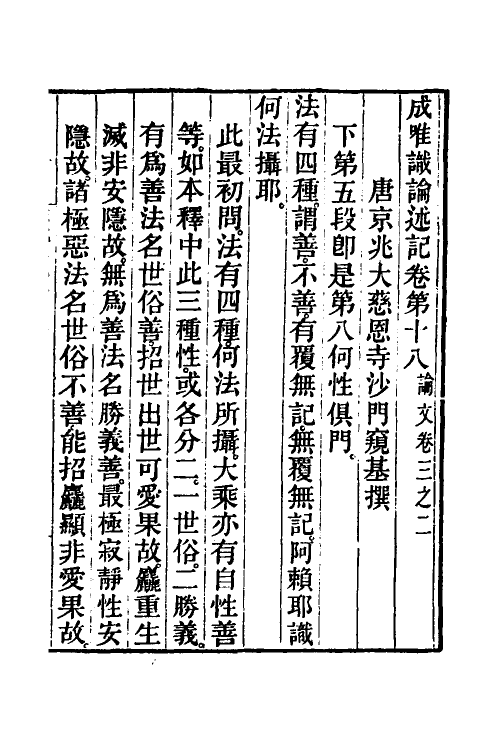 成唯識論述記卷第十八 論文卷三之二
唐京兆大慈恩寺沙門窺基撰
下第五段卽是第八何性俱門。
法有四種。謂善。不善。有覆無記。無覆無記。阿賴耶識
何法攝耶。
此最初問。法有四種。何法所攝。大乘亦有自性善
等。如本釋中此三種性。或各分二。一世俗。二勝義。
有爲善法名世俗善。招世出世可愛果故。麤重生
滅非安隱故。無爲善法名勝義善。最極寂靜性安
隱故。諸極惡法名世俗不善。能招麤顯非愛果故。